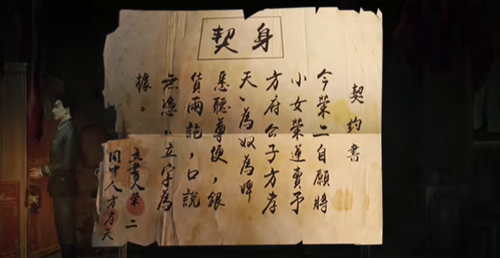 身契
契約書
今榮二自願將
小女榮蓮賣予
方府公子方孝
天，為奴為婢
悉聽尊便，銀
貨兩訖，口說
無憑，立字為
據。
立書人榮二
中人方天